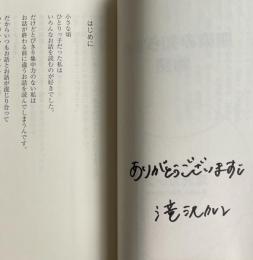 はじめに
小さな頃
ひとりっ子だった私は
いろんなお話を読むのが好きでした。
だけどとびきり集中力のない私は
お話が終わる前に違うお話を読んでしまうんです。
だからいつもお話とお話が混じり合って
ありがとうございます
滝沢カレン